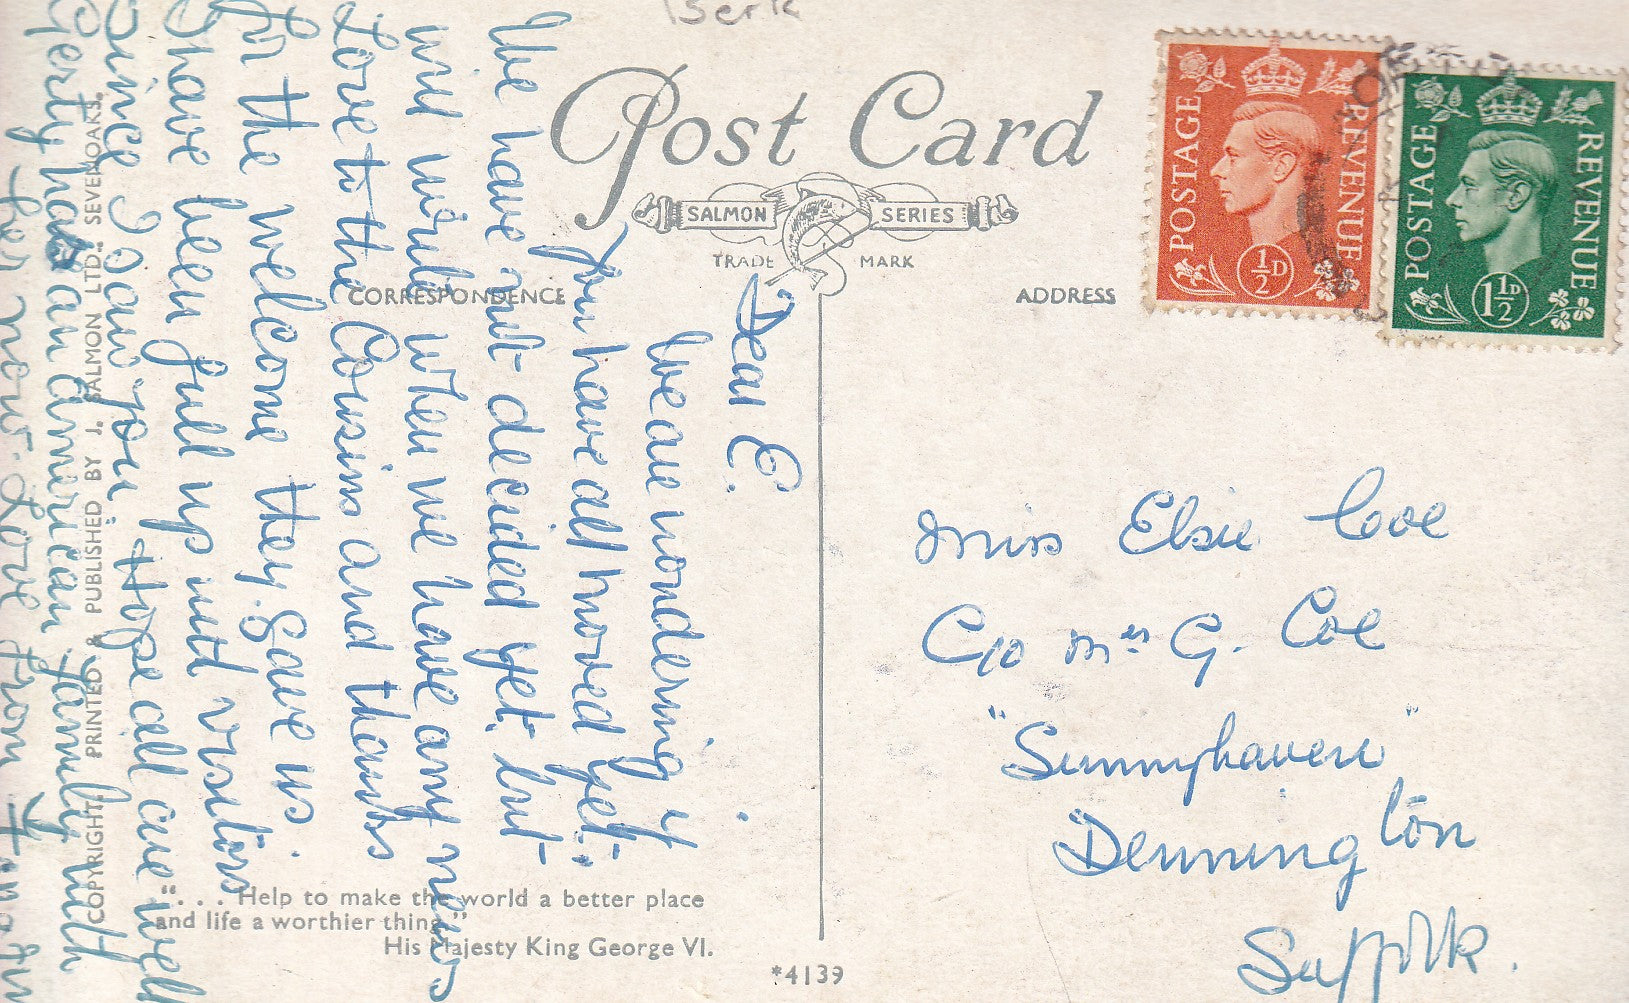 Berk
Post Card
SALMON SERIES
TRADE MARK
CORRESPONDENCE
ADDRESS
POSTAGE REVENUE
½D
POSTAGE REVENUE
1½D
Dear E.
We are wondering if
you have all moved yet.
We have not decided yet, but
will write when we have any news
Love to the Cousins and thanks
for the welcome they gave us.
I have been full up with visitors
Since I saw you Hope all are well
Gerty has an American family with
her now. Love from
Miss Elsie Coe
C/o Mrs G. Coe
"Sunnyhaven"
Dennington
Suffolk.
COPYRIGHT. PRINTED & PUBLISHED BY J. SALMON LTD. SEVENOAKS.
"... Help to make the world a better place
and life a worthier thing."
His Majesty King George VI.
*4139